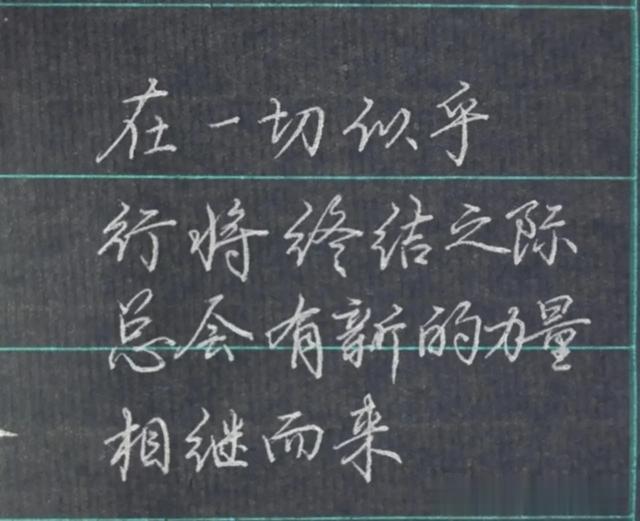 在一切似乎
行将终结之际
总会有新的力量
相继而来